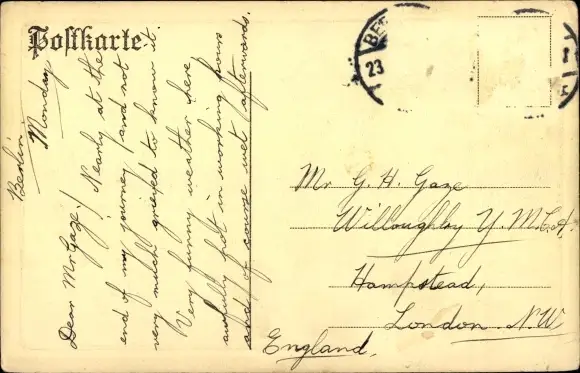 Postkarte
Berlin
Monday
Dear Mr Gaze! Nearly at the
end of my journey and not
very much grieved to know it.
Very funny weather here
awfully hot in working hours
and of course wet afterwards.
BE
23
Mr G. H. Gaze
Willoughby Y.M.C.A.
Hampstead,
London. N.W
England.